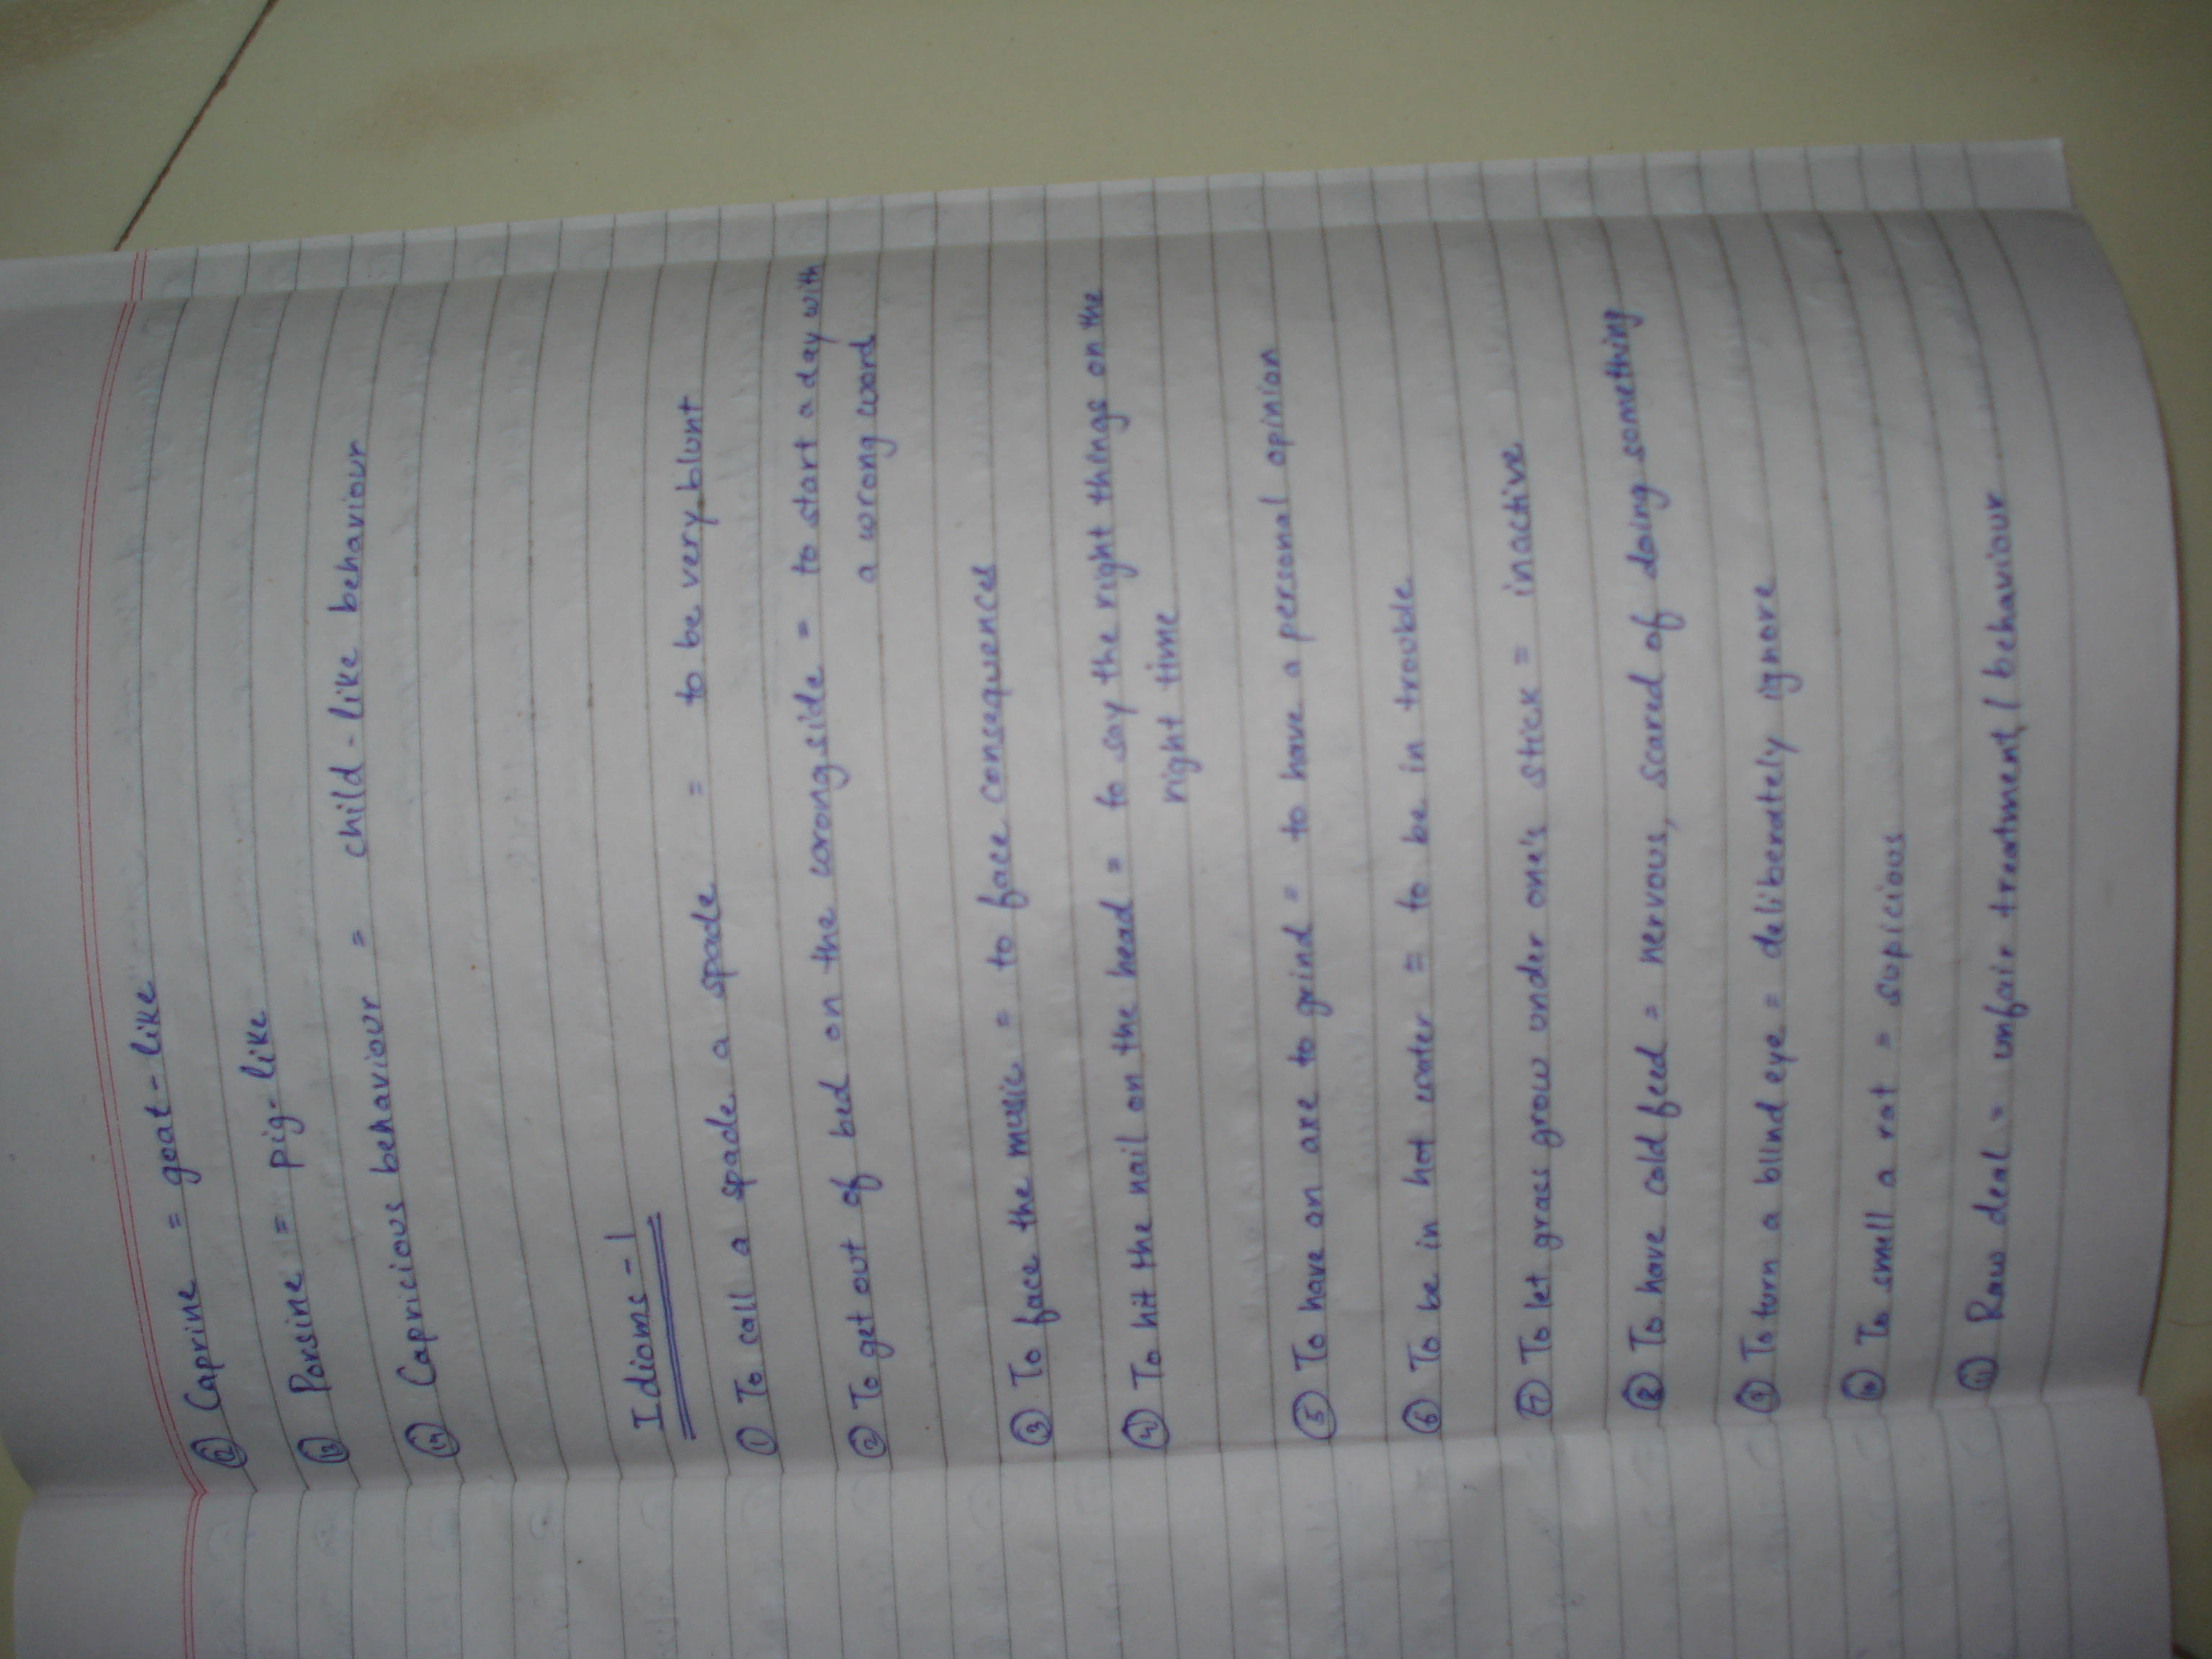 12 Caprine = goat-like
13 Porsine = pig-like
14 Capricious behaviour = child-like behaviour
Idioms - 1
1 To call a spade a spade = to be very blunt
2 To get out of bed on the wrong side = to start a day with
a wrong word
3 To face the music = to face consequences
4 To hit the nail on the head = to say the right things on the
right time
5 To have an axe to grind = to have a personal opinion
6 To be in hot water = to be in trouble
7 To let grass grow under one's stick = inactive
8 To have cold feed = nervous, scared of doing something
9 To turn a blind eye = deliberately ignore
10 To smell a rat = supicious
11 Raw deal = unfair treatment / behaviour